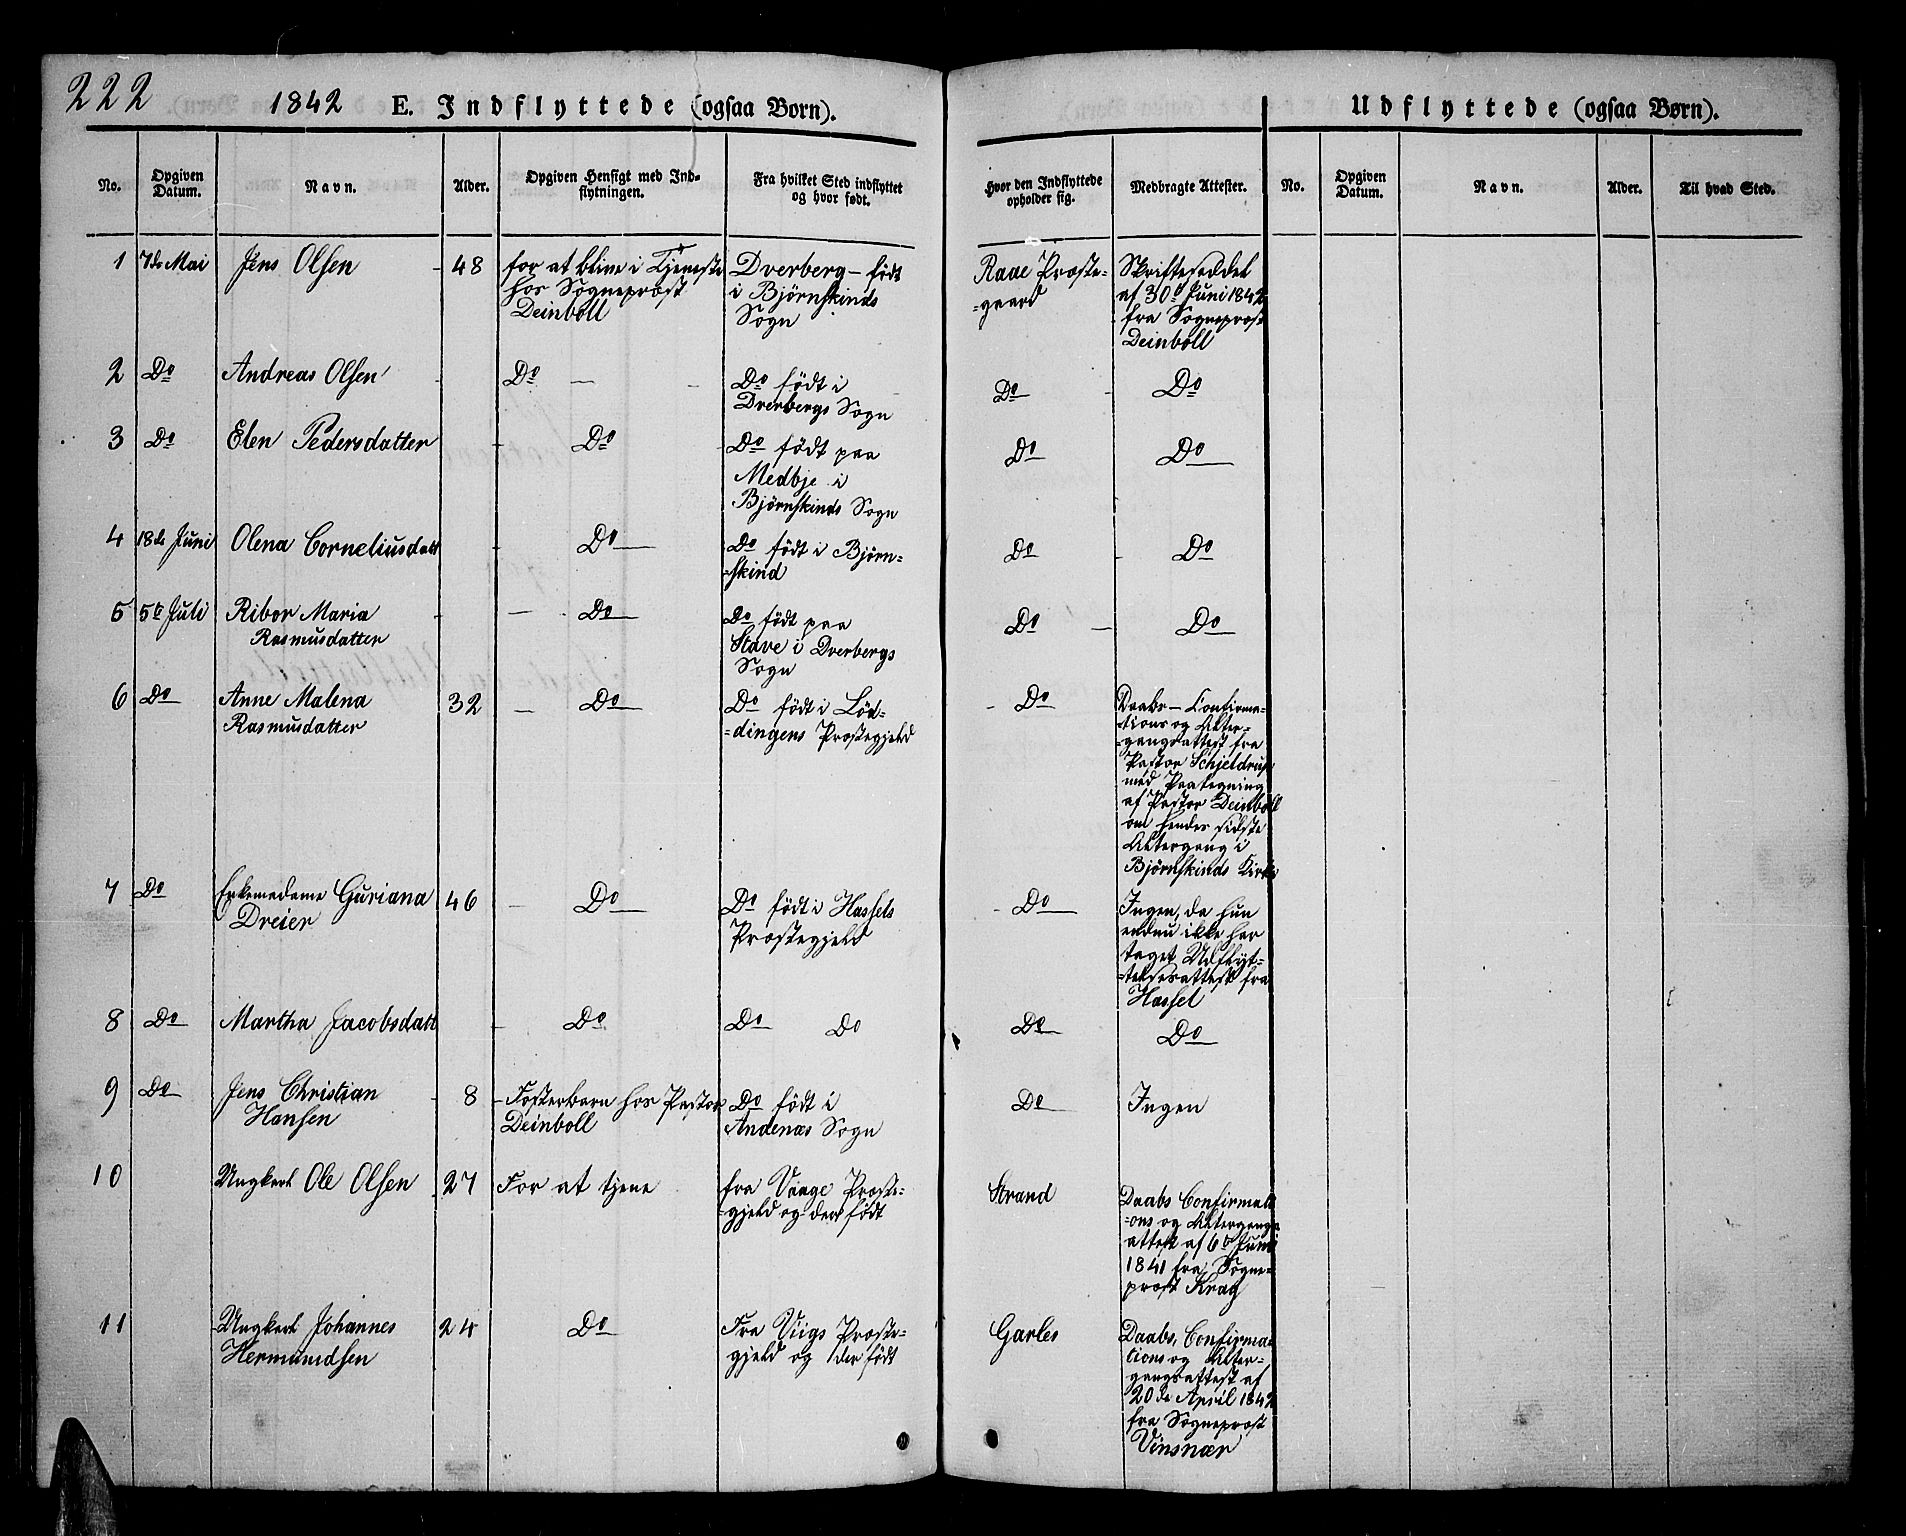 222
1842 E. Indflyttede (ogsaa Børn).
Udflyttede (ogsaa Børn).
No.
Opgiven Datum.
Navn.
Alder.
Opgiven Hensigt med Ind-
flytningen.
Fra hvilket Sted indflyttet
og hvor født.
Hvor den Indflyttede
opholder sig.
Medbragte Attester.
No.
Opgiven
Datum.
Navn.
Alder.
Til hvad Sted.
1 7de Mai Jens Olsen 48
for at blive i Tjeneste
hos Sogneprest
Deinboll
Dverberg - født
i Bjørnskinds
Sogn
Raae Præste-
=gaard
Skrifteseddel
af 30te Juni 1842
fra Sogneprest
Deinboll
2 Do Andreas Olsen
Do
Do født i
Dverbergs Sogn
Do
Do
3 Do Elen Pedersdatter
Do
Do født paa
Medbye i
Bjørnskinds Sogn
Do
Do
4 18de Juni Olena Corneliusdatt
Do
Do født i Bjørn-
=skind
Do
Do
5 5te Juli Ribor Maria
Rasmusdatter
Do
Do født paa
Stave i Dverbergs
Sogn
Do
Do
6 Do Anne Malena
Rasmusdatter
32
Do
Do født i Lød-
=dingens Præstegjeld
Do
Daabs- Confirma-
tions og Alter-
=gangsattest fra
Pastor Schjeldrup
med Paategning
af Pastor Deinboll
om hendes sidste
Altergang i
Bjørnskinds Kirke
7 Do Enkemadame Guriana
Dreier
46
Do
Do født i Hassels
Præstegjeld
Do
Ingen, da hun
endnu ikke har
taget Udflyt-
=telsesattest fra
Hassel
8 Do Martha Jacobsdatt
Do
Do Do
Do
Do
9 Do Jens Christian
Hansen
8
Fosterbarn hos Pastor
Deinboll
Do født i
Andenæs Sogn
Do
Ingen
10 Ungkarl Ole Olsen 27
For at tjene
fra Vaage Præste-
gjeld og der født
Strand
Daabs Confirmati
=ons og Altergangs
attest af 6te Juni
1841 fra Sogne-
prest Krag
11 Ungkarl Johannes
Hermundsen
24
Do
Fra Viigs Præste-
gjeld og der født
Garles
Daabs, Confirma-
tions og Alter-
gangsattest af
20de April 1842
fra Sogneprest
Vinsnær